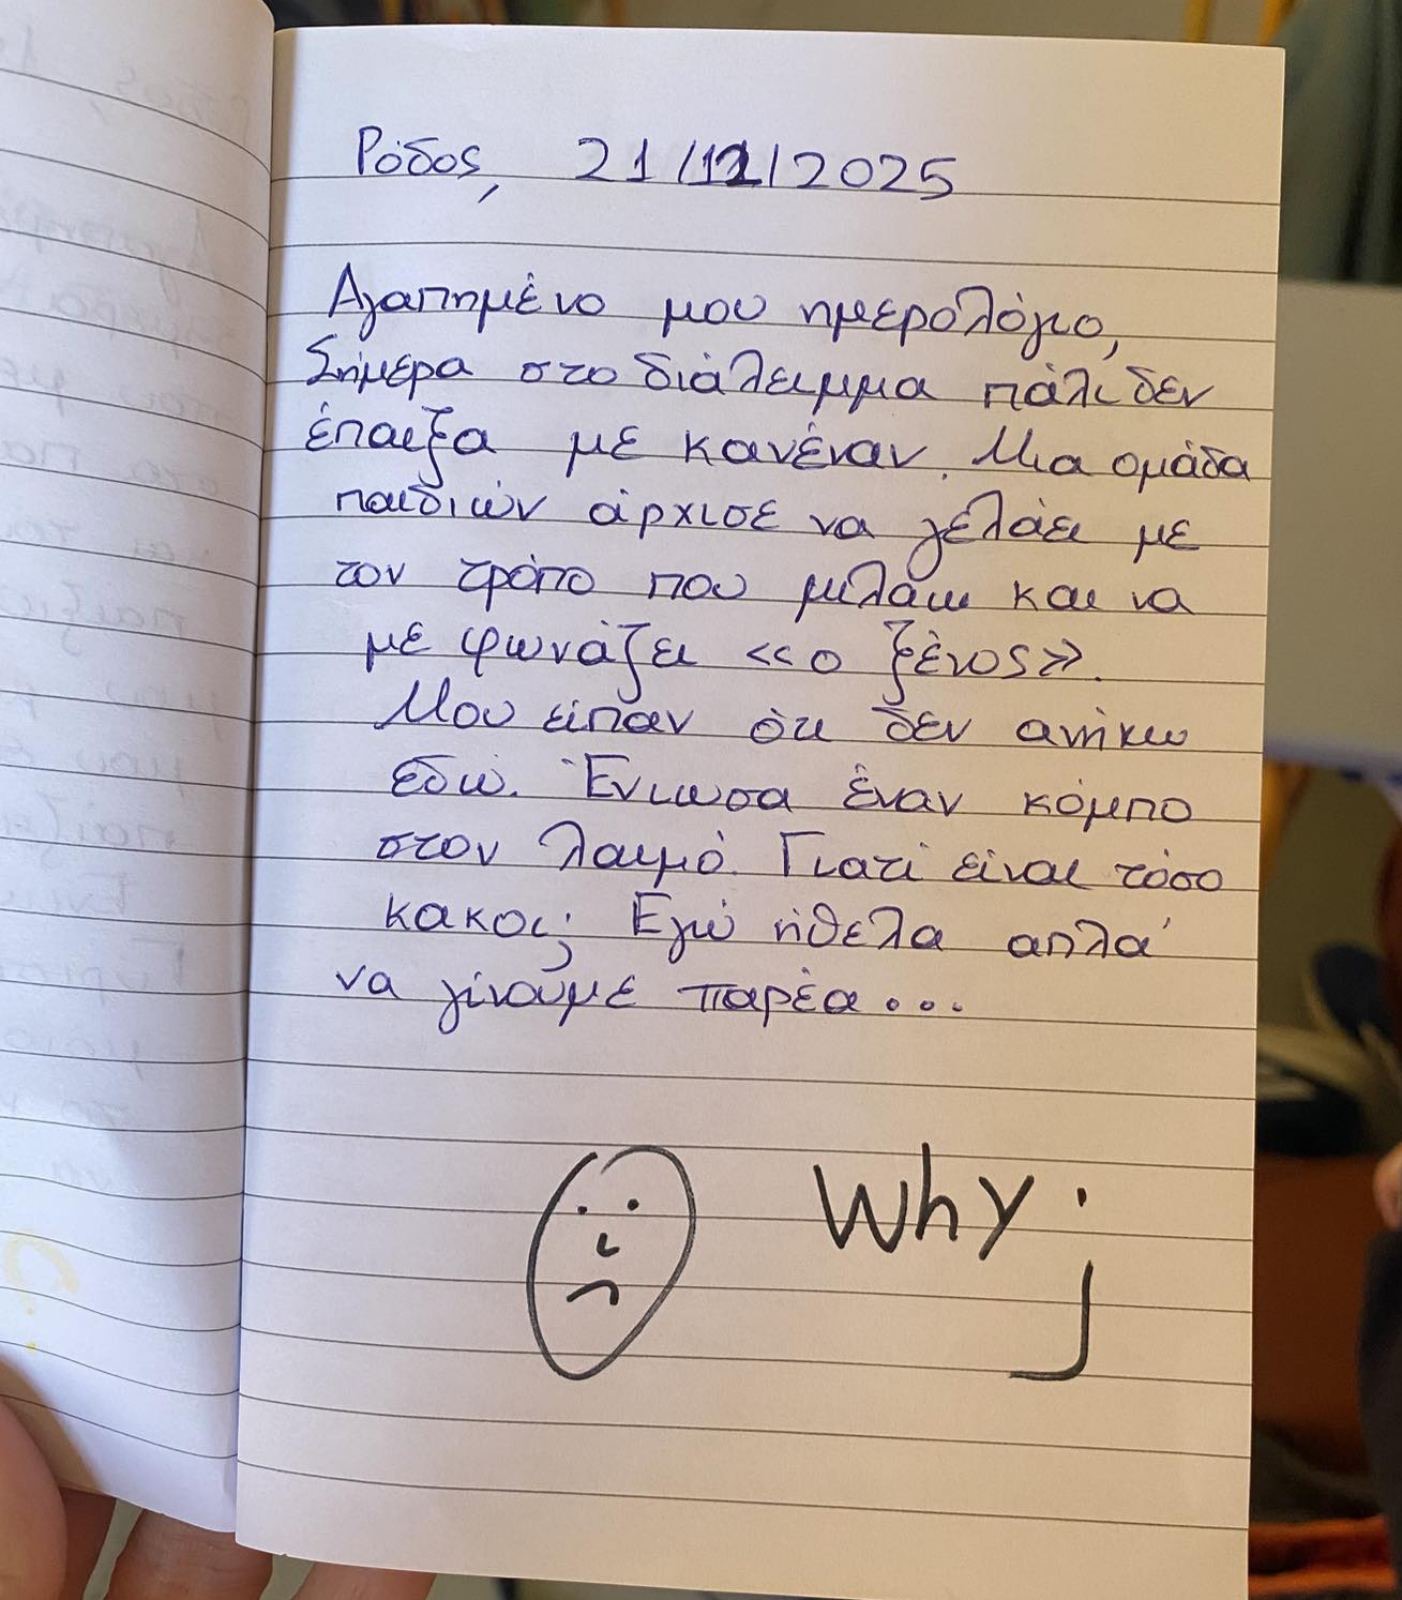 Ρόδος, 21/12/2025
Αγαπημένο μου ημερολόγιο,
Σήμερα στο διάλειμμα πάλι δεν
έπαιξα με κανέναν. Μια ομάδα
παιδιών άρχισε να γελάει με
τον τρόπο που μιλάω και να
με φωνάζει «ο ξένος».
Μου είπαν ότι δεν ανήκω
εδώ. Ένιωσα έναν κόμπο
στον λαιμό. Γιατί είναι τόσο
κακοί; Εγώ ήθελα απλά
να γίνουμε παρέα...
Why;